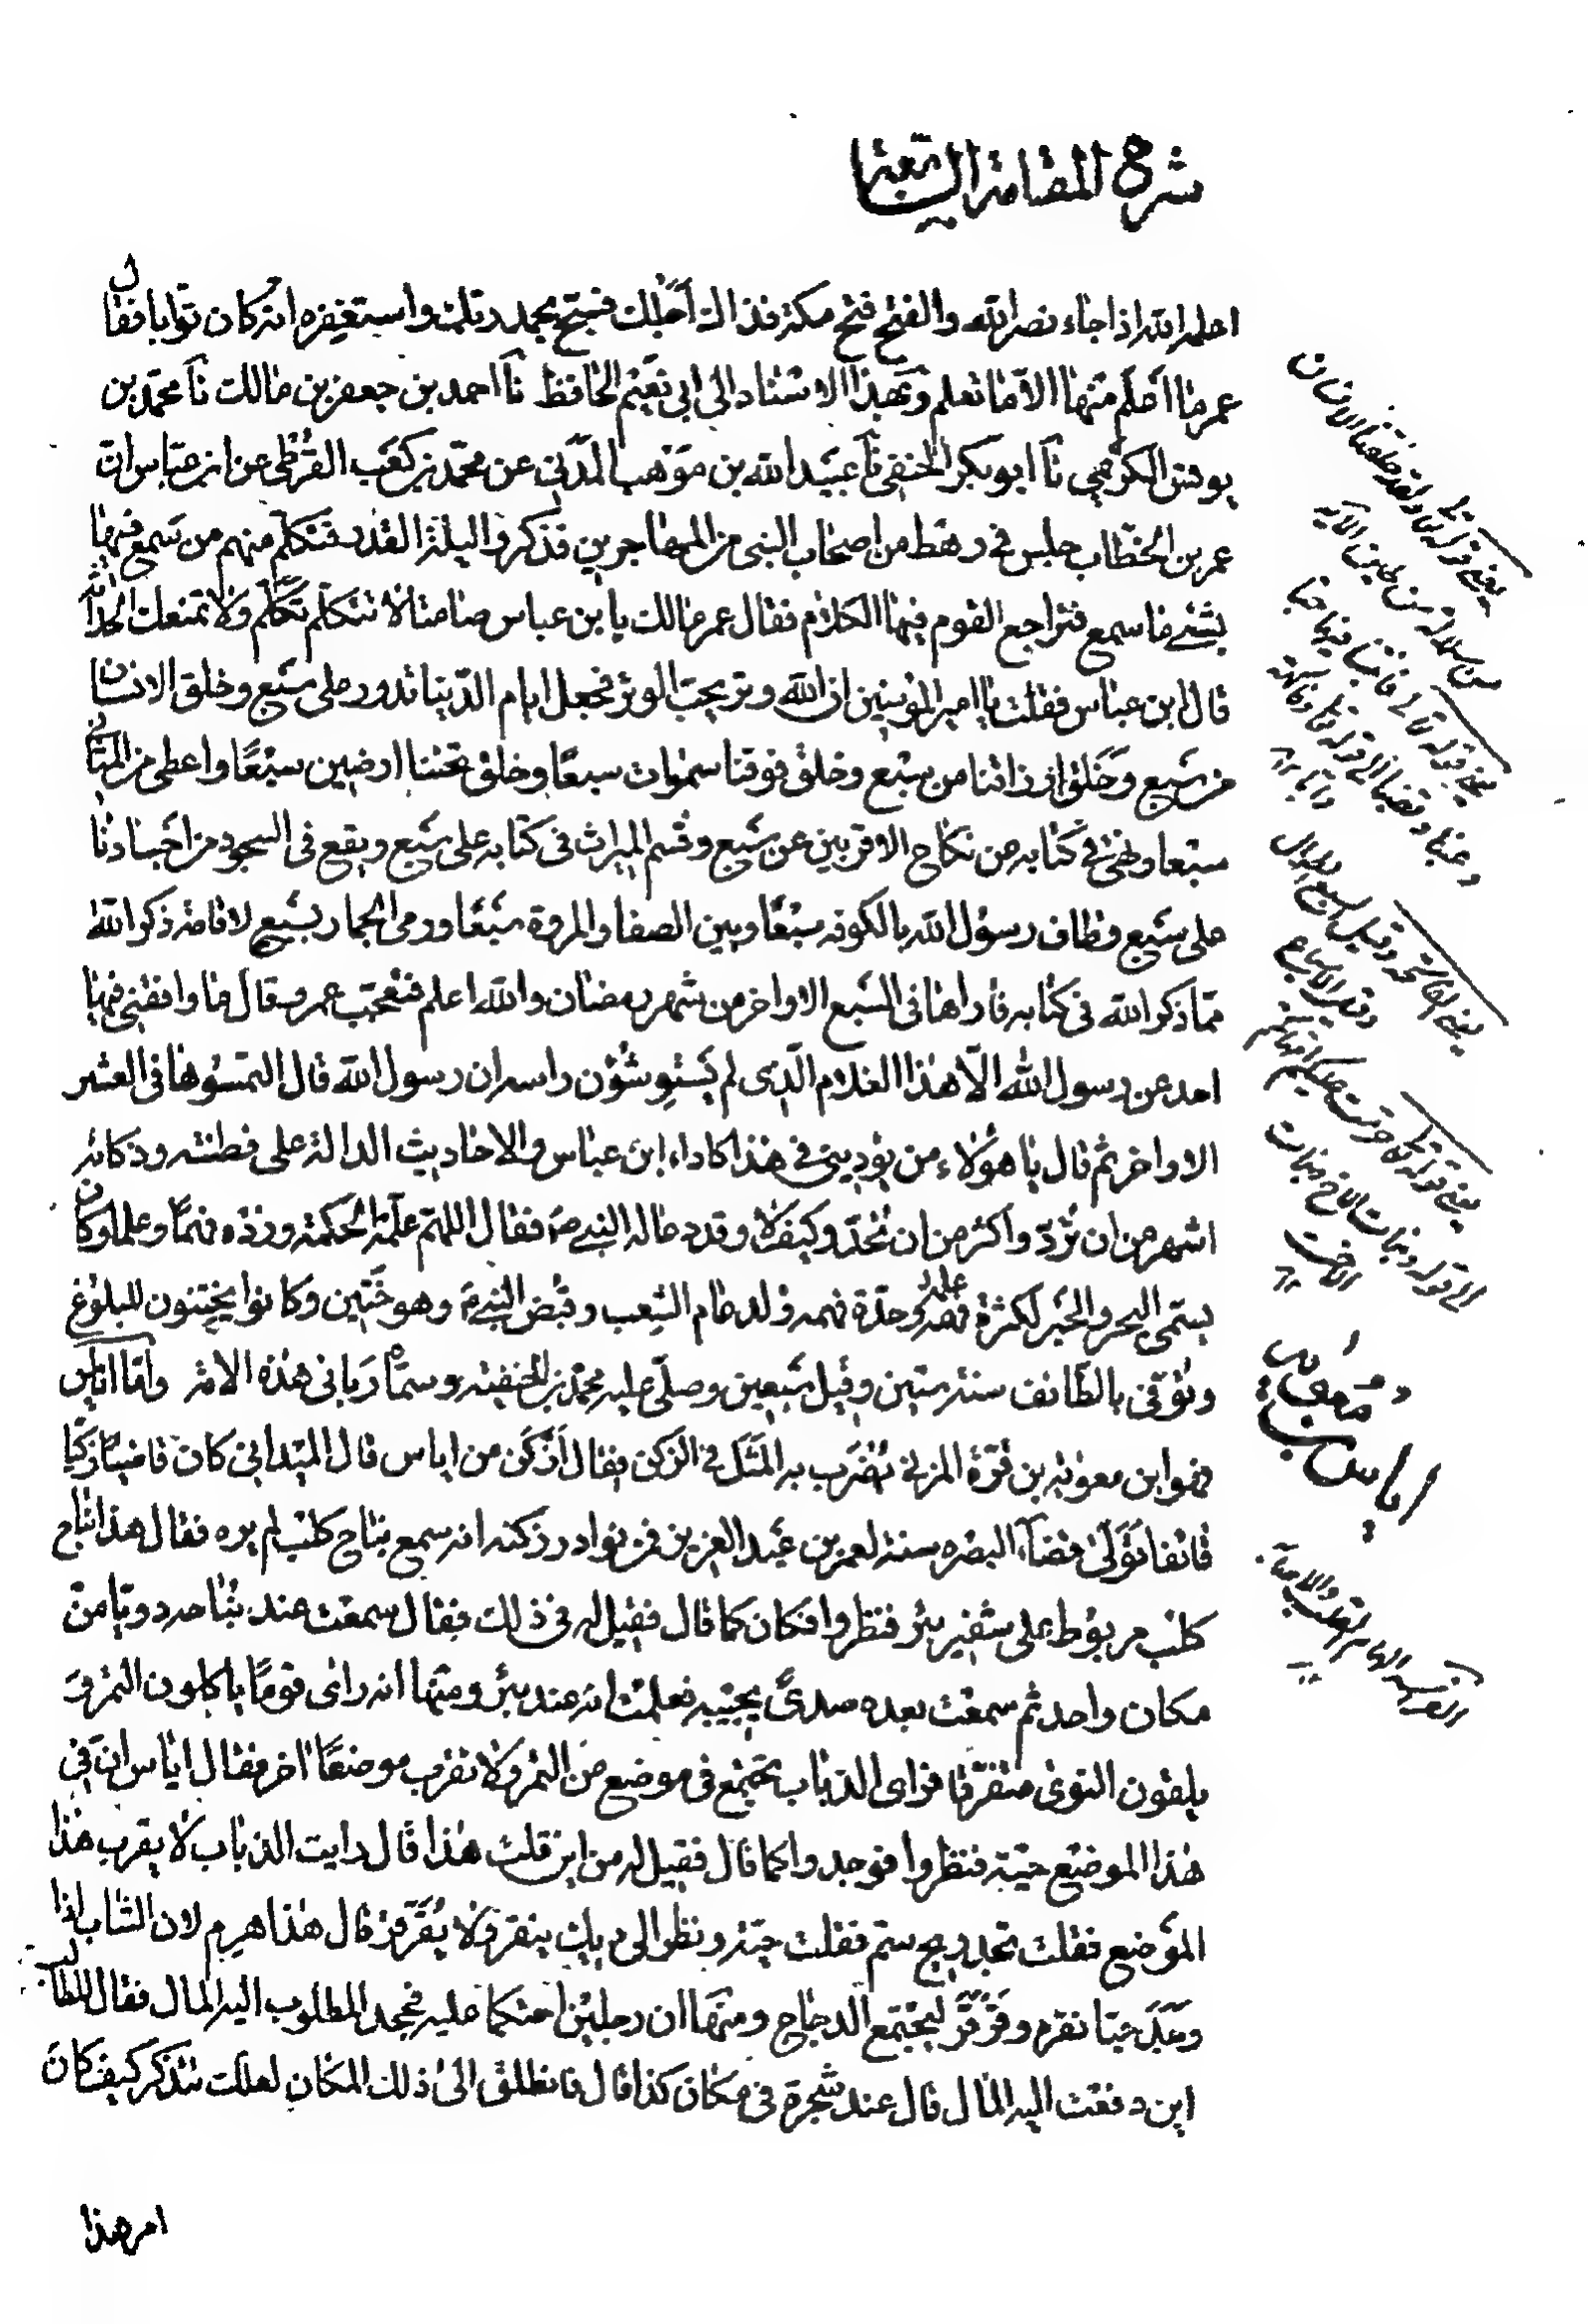 شرح المقامة السابعة
اعلمه الله اذا جاء نصر الله والفتح فتح مكة فذاك اجلك فسبح بحمد ربك واستغفره انه كان توابا فقال
عمر ما اعلم منها الا ما تعلم وبهذا الاسناد الى ابى نعيم الحافظ نآ احمد بن جعفر بن مالك نآ محمد بن
يونس الكرهمي نآ ابو بكر الحنفي نآ عبيد الله بن موهب المدني عن محمد بن كعب القرظي عن ابن عباس ان
عمر بن الخطاب جلس في رهط من اصحاب النبي من المهاجرين فذكروا ليلة القدر فتكلم منهم من سمع فيها
بشئ ما سمع فتراجع القوم فيها الكلام فقال عمر مالك يا ابن عباس صامتا لا تتكلم تكلم ولا تمنعك الحداثة
قال ابن عباس فقلت يا امير المؤمنين ان الله وتر يحب الوتر فجعل ايام الدنيا تدور على سبع وخلق الانسان
من سبع وخلق ارزاقنا من سبع وخلق فوقنا سموات سبعا وخلق تحتنا ارضين سبعا واعطى من المثاني
سبعا ونهى في كتابه من نكاح الاقربين عن سبع وقسم الميراث فى كتابه على سبع ويقع فى السجود من اجسادنا
على سبع وطاف رسول الله بالكوفه سبعا وبين الصفا والمروة سبعا ورمى الجمار بسبع لاقامة ذكر الله
مما ذكر الله فى كتابه فاراها فى السبع الاواخر من شهر رمضان والله اعلم فتعجب عمر وقال ما وافقنى فيها
احد عن رسول الله الا هذا الغلام الذى لم يستو شؤن راسه ان رسول الله قال التمسوها فى العشر
الاواخر ثم قال يا هؤلاء من يؤديني في هذا كاداء ابن عباس والاحاديث الدالة على فطنته وذكائه
اشهر من ان ترد واكثر من ان تحد وكيف لا وقد دعا له النبي ص فقال اللهم علمه الحكمة وزده فهما وعلما وكان
يسمى البحر والحبر لكثرة علمه وحدة فهمه ولد عام الشعب وقبض النبي ص وهو ختين وكانوا يختنون للبلوغ
وتوفى بالطائف سنة ستين وقيل سبعين وصلى عليه محمد بن الحنفيه وسماه ربانى هذه الامة واما اياس
فهو ابن معويه بن قرة المزني تضرب به المثل في الزكن فيقال ازكن من اياس قال الميداني كان قاضيا زكيا
قائفا تولى قضآء البصره سنة لعمر بن عبد العزيز فمن نوادر زكنه انه سمع نباح كلب لم يره فقال هذا نباح
كلب مربوط على شفير بئر فنظروا فكان كما قال فقيل له فى ذلك فقال سمعت عند نباحه دويا من
مكان واحد ثم سمعت بعده صدى يجيبه فعلمت انه عند بئر ومنها انه راى قوما ياكلون التمر و
يلقون النوى متفرقا فراى الذباب يجتمع فى موضع من التمر ولا تقرب موضعا اخر فقال اياس ان فى
هذا الموضع حية فنظروا فوجدوا كما قال فقيل له من اين قلت هذا قال رايت الذباب لا يقرب هذا
الموضع فقلت تجد ريح سم فقلت حية ونظر الى ديك ينقر ولا يقرقر قال هذا هرم لان الشاب اذا
وجد حبا نقره وقرقر ليجتمع الدجاج ومنها ان رجلين احتكما عليه فجحد المطلوب اليه المال فقال للطالب
اين دفعت اليه المال قال عند شجرة فى مكان كذا قال فانطلق الى ذلك المكان لعلك تتذكر كيف كان
امر هذا
يعني قوله تعالى ولقد خلقنا الانسان
من سلالة من طين الآيه
يعني قوله تعالى فانبتنا فيها حبا
وعنبا وقضبا الى قوله وفاكهة
وابا
يعني الفاتحة وقيل السبع الطوال
يعني قوله تعالى حرمت عليكم امهاتكم
الى قوله وبنات الاخ وبنات
الاخت
اياس بن معوية